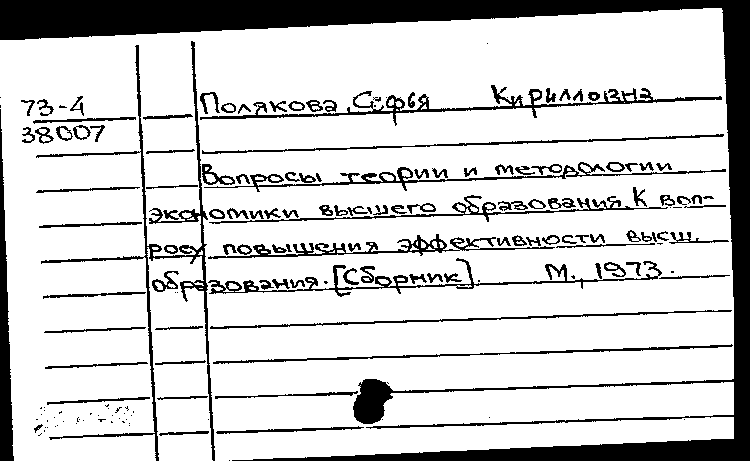 73-4
38007
Полякова, Софья Кирилловна
Вопросы теории и методологии
экономики высшего образования. К воп-
росу повышения эффективности высш.
образования. [Сборник]. М., 1973.